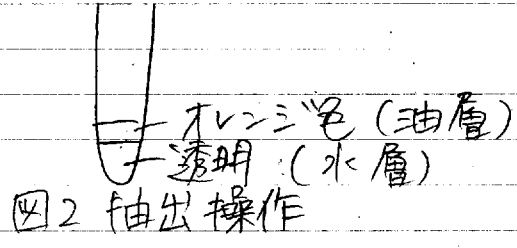 オレンジ色（油層）
透明（水層）
図2 抽出操作